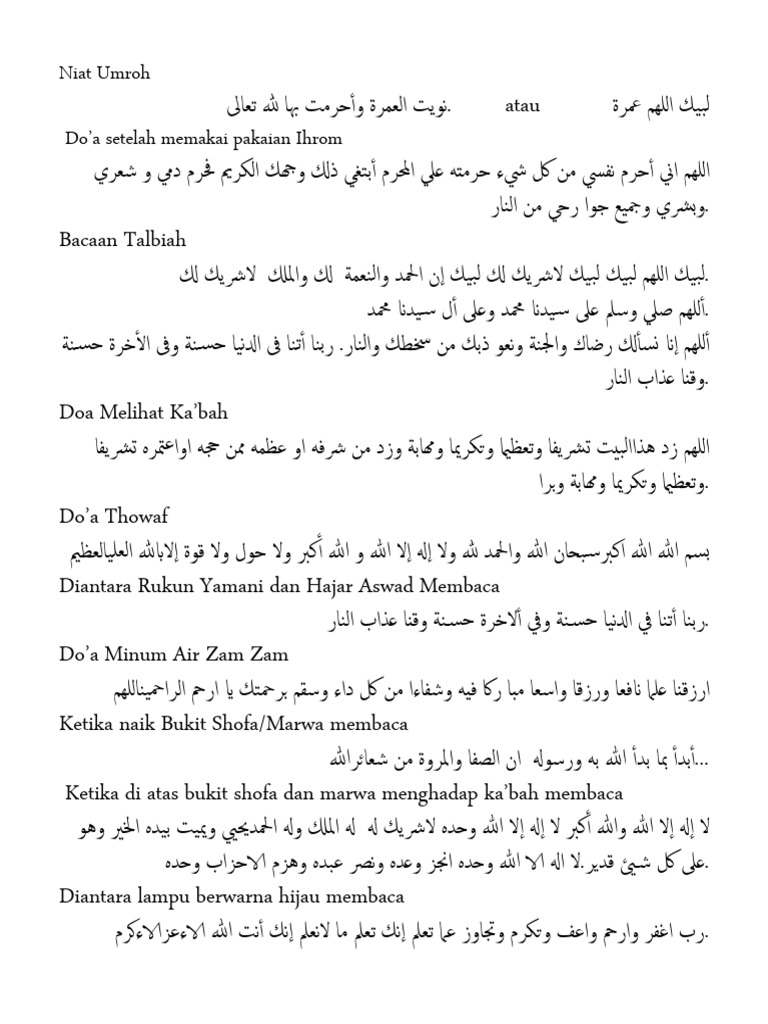 Niat Umroh
لبيك اللهم عمرة atau نويت العمرة وأحرمت بها لله تعالى.
Do'a setelah memakai pakaian Ihrom
اللهم اني أحرم نفسي من كل شيء حرمته علي المحرم أبتغي ذلك وجهك الكريم فحرم دمي و شعري
وبشري وجميع جوا رحي من النار.
Bacaan Talbiah
لبيك اللهم لبيك لبيك لاشريك لك لبيك إن الحمد والنعمة لك والملك لاشريك لك.
أللهم صلي وسلم على سيدنا محمد وعلى أل سيدنا محمد.
أللهم إنا نسألك رضاك والجنة ونعو ذبك من سخطك والنار. ربنا أتنا فى الدنيا حسنة وفى الأخرة حسنة
وقنا عذاب النار.
Doa Melihat Ka'bah
اللهم زد هذاالبيت تشريفا وتعظيما وتكريما ومهابة وزد من شرفه او عظمه ممن حجه اواعتمره تشريفا
وتعظيما وتكريما ومهابة وبرا.
Do'a Thowaf
بسم الله الله اكبرسبحان الله والحمد لله ولا إله إلا الله و الله أكبر ولا حول ولا قوة إلابالله العليالعظيم
Diantara Rukun Yamani dan Hajar Aswad Membaca
ربنا أتنا في الدنيا حسنة وفي ألاخرة حسنة وقنا عذاب النار.
Do'a Minum Air Zam Zam
ارزقنا علما نافعا ورزقا واسعا مبا ركا فيه وشفاءا من كل داء وسقم برحمتك يا ارحم الراحميناللهم
Ketika naik Bukit Shofa/Marwa membaca
أبدأ بما بدأ الله به ورسوله ان الصفا والمروة من شعائرالله...
Ketika di atas bukit shofa dan marwa menghadap ka'bah membaca
لا إله إلا الله والله أكبر لا إله إلا الله وحده لاشريك له له الملك وله الحمديحيي ويميت بيده الخير وهو
على كل شيئ قدير.لا اله الا الله وحده انجز وعده ونصر عبده وهزم الاحزاب وحده.
Diantara lampu berwarna hijau membaca
رب اغفر وارحم واعف وتكرم وتجاوز عما تعلم إنك تعلم ما لانعلم إنك أنت الله الاءعزالاءكرم.